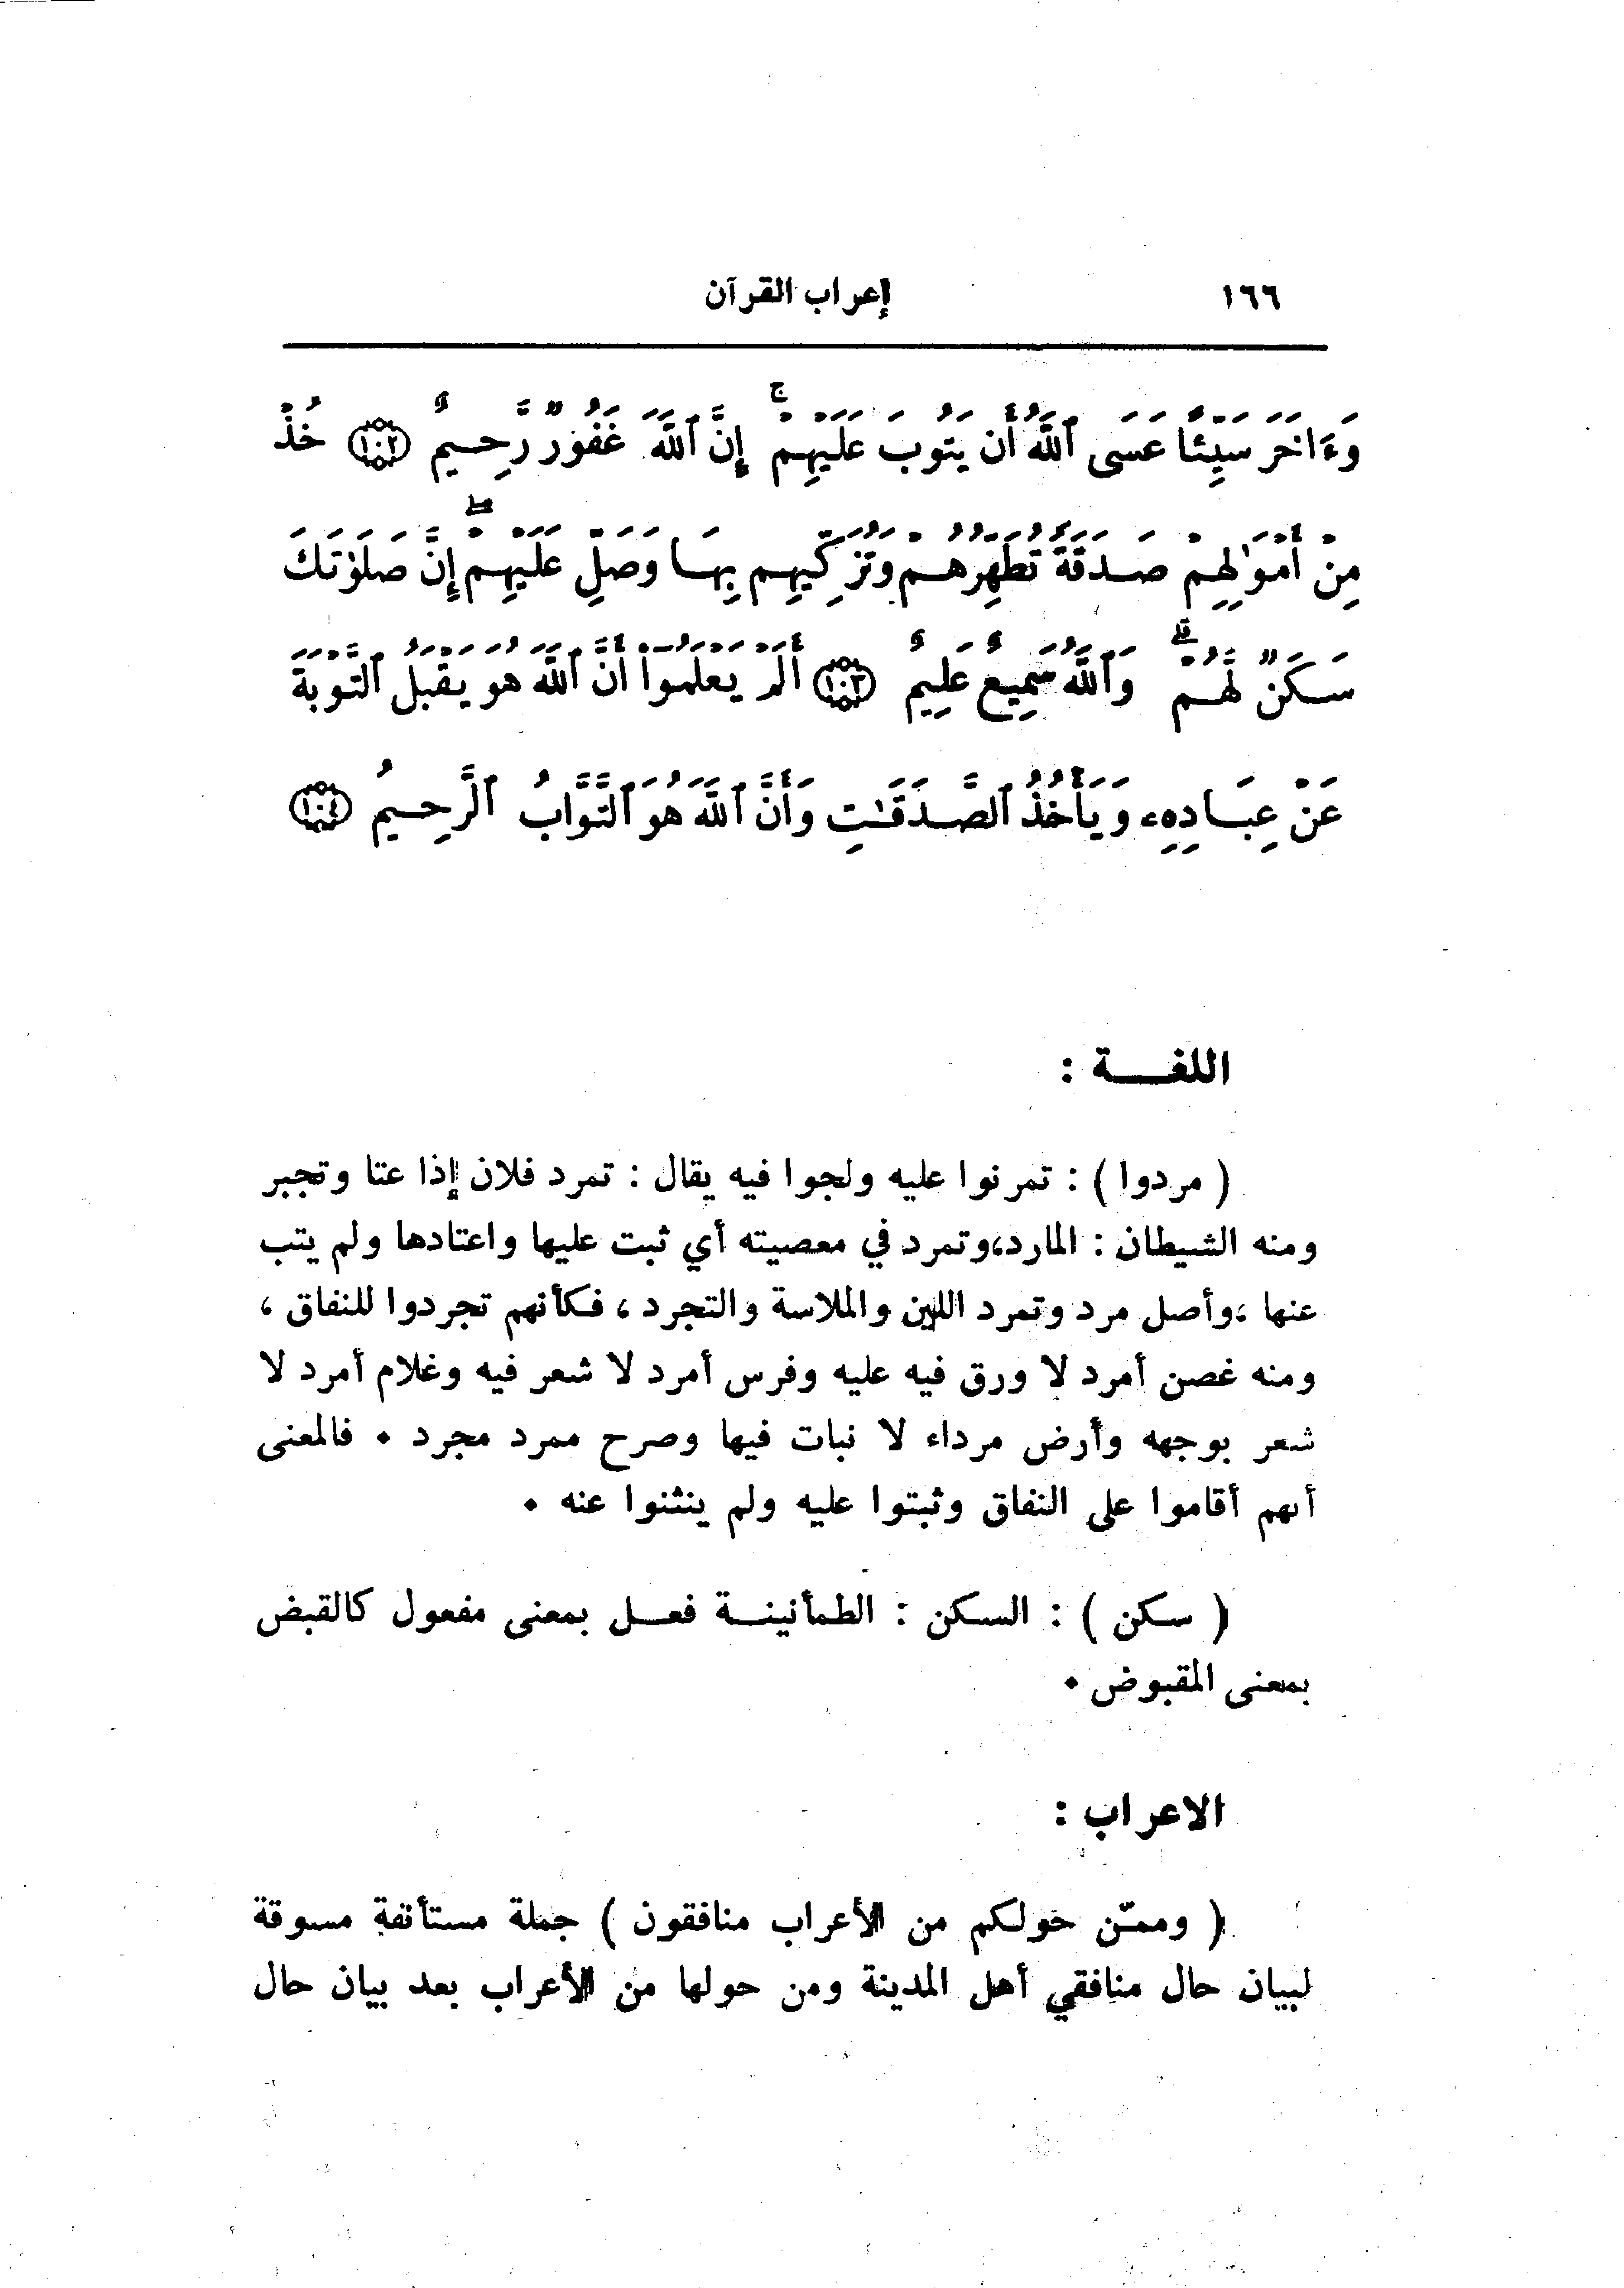 ١٦٦ إعراب القرآن
وَءَاخَرَ سَيِّئًا عَسَى ٱللَّهُ أَن يَتُوبَ عَلَيْهِمْ ۚ إِنَّ ٱللَّهَ غَفُورٌ رَّحِيمٌ ﴿١٠٢﴾ خُذْ
مِنْ أَمْوَٰلِهِمْ صَدَقَةً تُطَهِّرُهُمْ وَتُزَكِّيهِم بِهَا وَصَلِّ عَلَيْهِمْ ۖ إِنَّ صَلَوٰتَكَ
سَكَنٌ لَّهُمْ ۗ وَٱللَّهُ سَمِيعٌ عَلِيمٌ ﴿١٠٣﴾ أَلَمْ يَعْلَمُوٓا۟ أَنَّ ٱللَّهَ هُوَ يَقْبَلُ ٱلتَّوْبَةَ
عَنْ عِبَادِهِۦ وَيَأْخُذُ ٱلصَّدَقَـٰتِ وَأَنَّ ٱللَّهَ هُوَ ٱلتَّوَّابُ ٱلرَّحِيمُ ﴿١٠٤﴾
اللغـــة :
( مردوا ) : تمرنوا عليه ولجوا فيه يقال : تمرد فلان إذا عتا وتجبر
ومنه الشيطان : المارد،وتمرد في معصيته أي ثبت عليها واعتادها ولم يتب
عنها ،وأصل مرد وتمرد اللين والملاسة والتجرد ، فكأنهم تجردوا للنفاق ،
ومنه غصن أمرد لا ورق فيه عليه وفرس أمرد لا شعر فيه وغلام أمرد لا
شعر بوجهه وأرض مرداء لا نبات فيها وصرح ممرد مجرد . فالمعنى
أنهم أقاموا على النفاق وثبتوا عليه ولم ينثنوا عنه .
( سكن ) : السكن : الطمأنينـة فعـل بمعنى مفعول كالقبض
بمعنى المقبوض .
الاعراب :
( وممّن حولكم من الأعراب منافقون ) جملة مستأنفة مسوقة
لبيان حال منافقي أهل المدينة ومن حولها من الأعراب بعد بيان حال